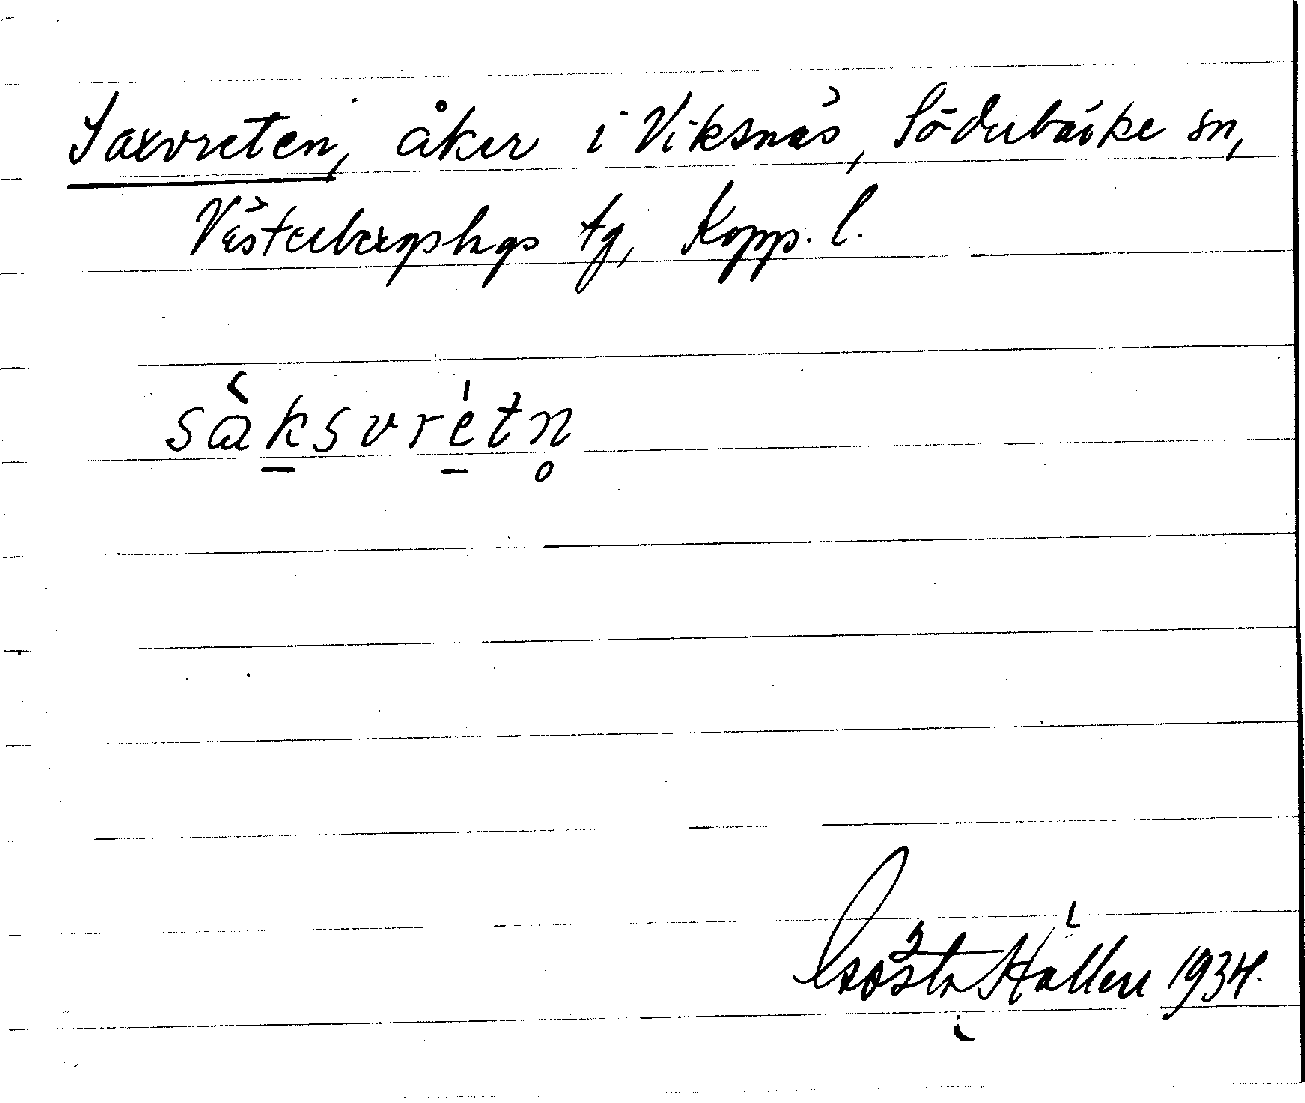 Saxvreten, åker i Viksnäs, Söderbärke sn,
Västerbergslags tg, Kopp. l.
sàk̲svre̲̍tn̥
Gösta Hallen 1934.